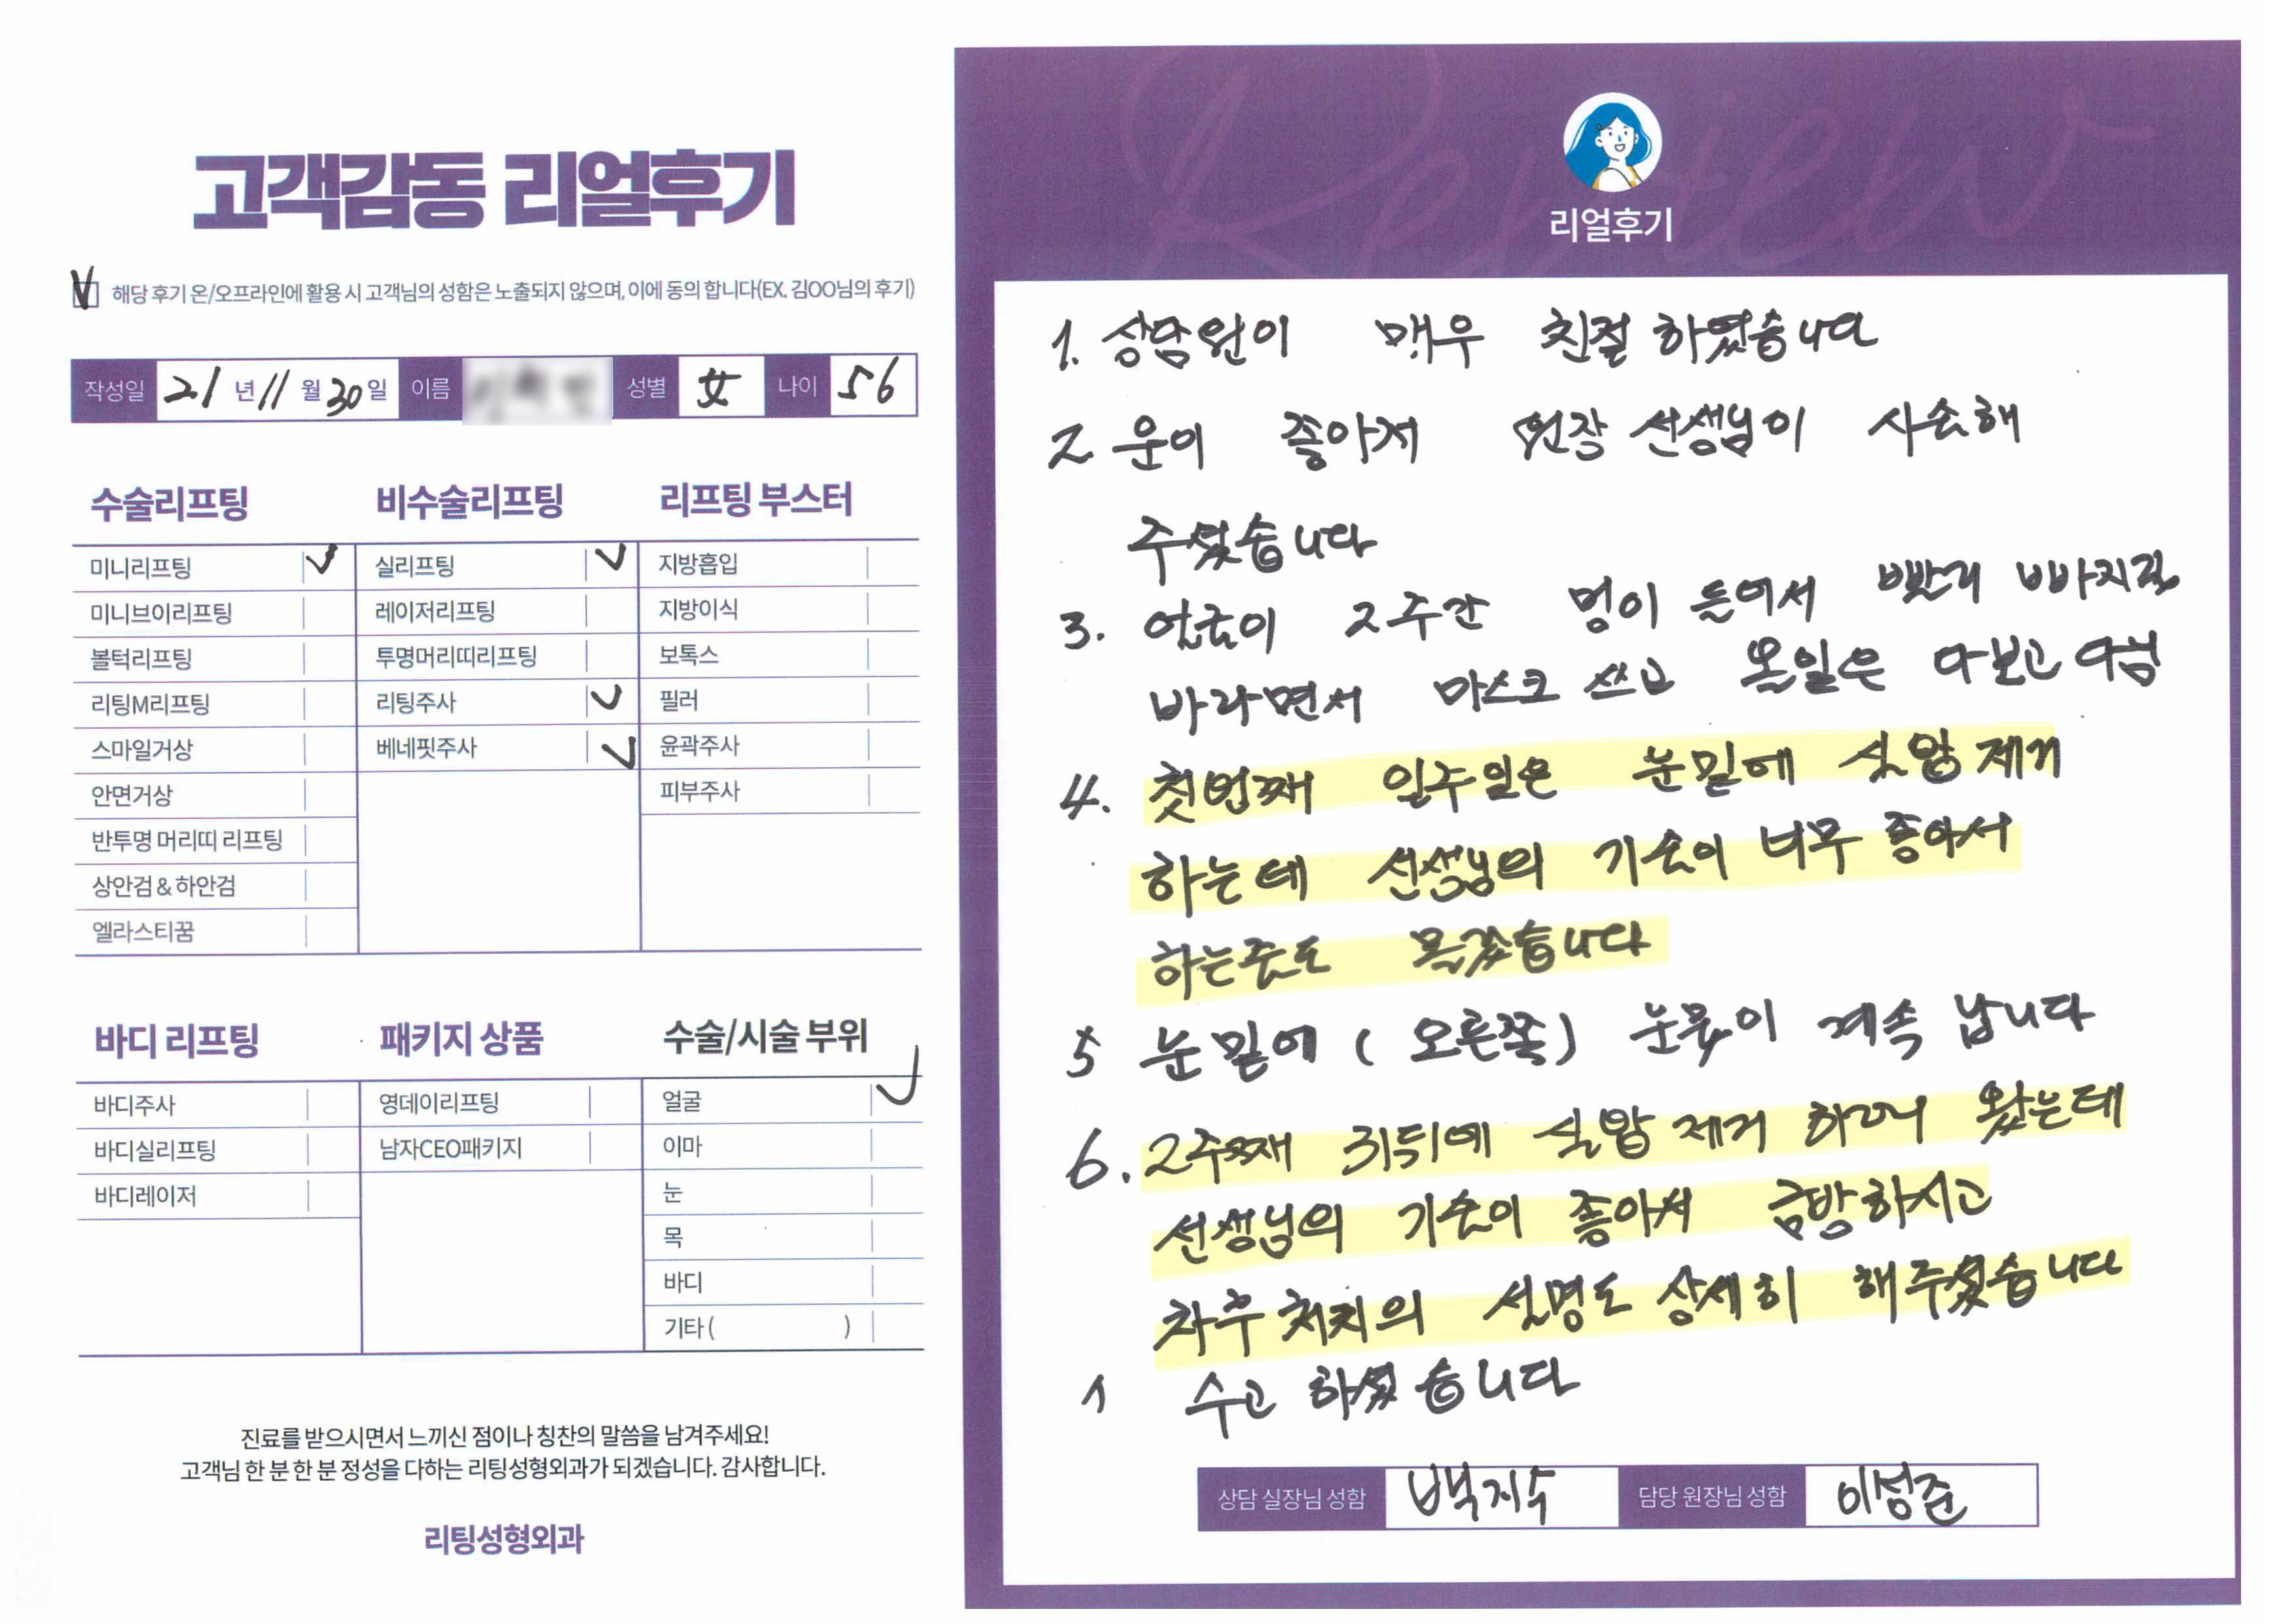 고객감동 리얼후기
해당 후기 온/오프라인에 활용 시 고객님의 성함은 노출되지 않으며, 이에 동의 합니다(EX. 김OO님의 후기)
작성일 21 년 11 월 30 일 이름 성별 女 나이 56
수술리프팅
미니리프팅
미니브이리프팅
볼턱리프팅
리팅M리프팅
스마일거상
안면거상
반투명 머리띠 리프팅
상안검 & 하안검
엘라스티꿈
비수술리프팅
실리프팅
레이저리프팅
투명머리띠리프팅
리팅주사
베네핏주사
리프팅 부스터
지방흡입
지방이식
보톡스
필러
윤곽주사
피부주사
바디 리프팅
바디주사
바디실리프팅
바디레이저
패키지 상품
영데이리프팅
남자CEO패키지
수술/시술 부위
얼굴
이마
눈
목
바디
기타 ( )
진료를 받으시면서 느끼신 점이나 칭찬의 말씀을 남겨주세요!
고객님 한 분 한 분 정성을 다하는 리팅성형외과가 되겠습니다. 감사합니다.
리팅성형외과
Review
리얼후기
1. 상담원이 매우 친절 하였습니다
2. 운이 좋아저 원장 선생님이 사손해
주셨습니다
3. 얼굴이 2주간 멍이 들어서 빨리 빠지길
바라면서 마스크 쓰고 볼일은 다보고 다님
4. 첫번째 일주일은 눈밑에 실밥 제거
하는데 선생님의 기술이 너무 좋아서
하는줄도 몰랐습니다
5 눈밑에 ( 오른쪽) 눈물이 계속 납니다
6. 2주째 귀뒤에 실밥 제거 하러 왔는데
선생님의 기술이 좋아서 금방하시고
차후 처치의 설명도 상세히 해주셨습니다
수고 하셨습니다
상담 실장님 성함 백지수 담당 원장님 성함 이성준